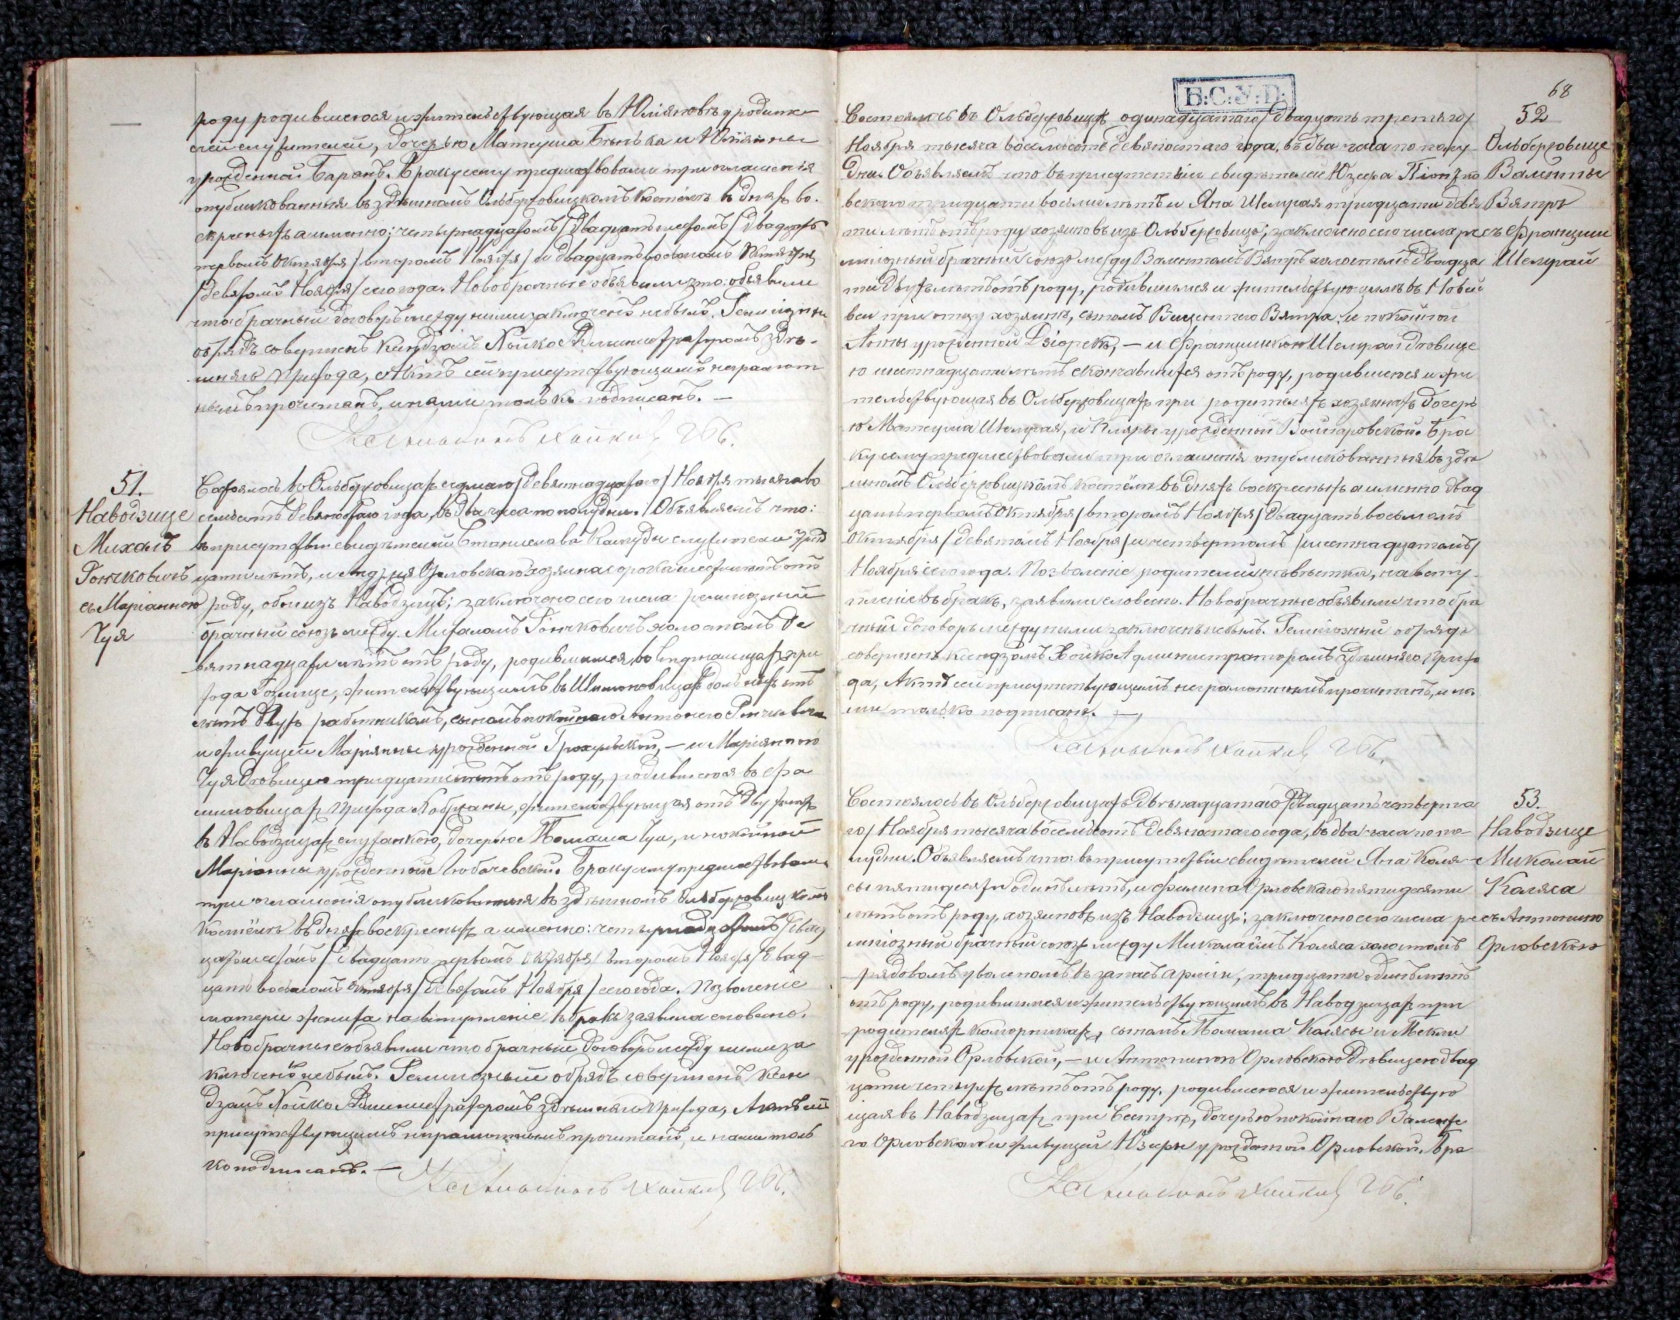 роду родившеюся и жительствующая въ Юліяновъ у родите
лей служителей, дочерью Матеуша и Юліянны
урожденной Баранъ. Браку сему предшествовали три оглашенія
опубликованныя въ здѣшномъ Ольбержовицкомъ Костёлѣ въ дняхъ во-
скресныхъ а именно: четырнадцатомъ /двадцать шестомъ/ двадцать
первомъ Октября /второмъ Ноября/ и двадцать восьмомъ Октября
/девятомъ Ноября/ сего года. Новобрачные объявили
что брачный договоръ между ними заключенъ не былъ. Религіозный
обрядъ совершенъ Ксендзомъ Хойко Администраторомъ здѣ-
шняго Прихода, Актъ сей присутствующимъ неграмот
нымъ прочитанъ, и нами только подписанъ. —
51.
Наводзице
Михалъ
Гончковичъ
съ Маріанною
Чуя
Состоялось въ Ольбержовицахъ седьмаго /девятнадцатаго/ Ноября тысяча во
семьсотъ девяностаго года, въ два часа пополудни. Объявляемъ что:
въ присутствіи свидѣтелей Станислава служителя
цати лѣтъ, и Андрея Орловскаго хозяина сорока шести лѣтъ отъ
роду, обоихъ изъ Наводзицъ; заключено сего числа религіозный
брачный союзъ между Михаломъ Гончковичъ холостомъ де
вятнадцати лѣтъ отъ роду, родившимся во при
хода жительствующимъ въ Шимоновицахъ отъ
лѣтъ двухъ работникомъ, сыномъ покойнаго Антонего Гончковича
и живущей Маріянны урожденной — и Маріянною
Чуя дѣвицею тридцати лѣтъ отъ роду, родившеюся въ
прихода Кобржаны, жительствующая отъ двухъ лѣтъ
въ Наводзицахъ служанкою, дочерью Томаша Чуя, и покойной
Маріанны урожденной Любачевской. Браку сему предшествовали
три оглашенія опубликованныя въ здѣшномъ Ольбержовицкомъ
Костёлѣ въ дняхъ воскресныхъ а именно: четырнадцатомъ /двад
цать шестомъ/ двадцать первомъ Октября /второмъ Ноября/ двад-
цать восьмомъ Октября /девятомъ Ноября/ сего года. Позволеніе
матери жениха на вступленіе въ бракъ заявила словесно.
Новобрачные объявили что брачный договоръ между ними за
ключенъ не былъ. Религіозный обрядъ совершенъ Ксен
дзомъ Хойко Администраторомъ здѣшняго Прихода, Актъ сей
присутствующимъ неграмотнымъ прочитанъ, и нами толь
ко подписанъ. —
Б:С:У:Д:
68
52
Ольбержовице
Валенты
Вятръ
съ Францишк
Шемрай
Состоялось въ Ольбержовицахъ одинадцатаго /двадцать третьяго/
Ноября тысяча восемьсотъ девяностаго года, въ два часа по полу-
дни. Объявляемъ что въ присутствіи свидѣтелей Юзефа
вскаго тридцати восьми лѣтъ и Яна Шемрая тридцати девя
ти лѣтъ отъ роду хозяиновъ изъ Ольбержовицъ; заключено сего числа ре
лигіозный брачный союзъ между Валентымъ Вятръ холостымъ двадца
ти двухъ лѣтъ отъ роду, родившимся и жительствующимъ въ Новой
вси при отцу хозяинѣ, сыномъ Винцентего Вятра, и покойной
Анны урожденной — и Францишкою Шемрай дѣвице
ю шестнадцати лѣтъ скончавшихся отъ роду, родившеюся и жи
тельствующая въ Ольбержовицахъ при родителяхъ хозяинахъ дочерь
ю Матеуша Шемрая, и Клары урожденной Войцеховской. Бра
ку сему предшествовали три оглашенія опубликованныя въ здѣ
шномъ Ольбержовицкомъ костёлѣ въ дняхъ воскресныхъ а именно двад
цать первомъ Октября /второмъ Ноября/ двадцать восьмомъ
Октября /девятомъ Ноября/ и четвертомъ /шестнадцатомъ/
Ноября сего года. Позволеніе родителей невѣстки, на всту-
пленіе въ бракъ, заявили словесно. Новобрачные объявили что бра
чный договоръ между ними заключенъ не былъ. Религіозный обрядъ
совершенъ ксендзомъ Хойко Администраторомъ здѣшняго Прихо
да, Актъ сей присутствующимъ неграмотнымъ прочитанъ, и на
ми только подписанъ. —
53.
Наводзице
Миколай
Каляса
съ Антонино
Орловскою
Состоялось въ Ольбержовицахъ двѣнадцатаго /двадцать четверта
го/ Ноября тысяча восемьсотъ девяностаго года, въ два часа по по-
лудни. Объявляемъ что: въ присутствіи свидѣтелей Яна Каля-
сы пятидесяти одинъ лѣтъ, и Филипа Орловскаго пятидесяти
лѣтъ отъ роду, хозяиновъ изъ Наводзицъ; заключено сего числа ре
лигіозный брачный союзъ между Миколаемъ Каляса холостомъ
рядовомъ уволномъ въ запасъ арміи, тридцати одинъ лѣтъ
отъ роду, родившимся и жительствующимъ въ Наводзицахъ при
родителяхъ каморникахъ, сыномъ Томаша Калясы и Теклы
урожденной Орловской, — и Антониною Орловскою дѣвицею двад
цати четырехъ лѣтъ отъ роду, родившеюся и жительствую
щая въ Наводзицахъ при сестрѣ, дочерью покойнаго Валенте
го Орловскаго и живущей урожденной Орловской. Бра